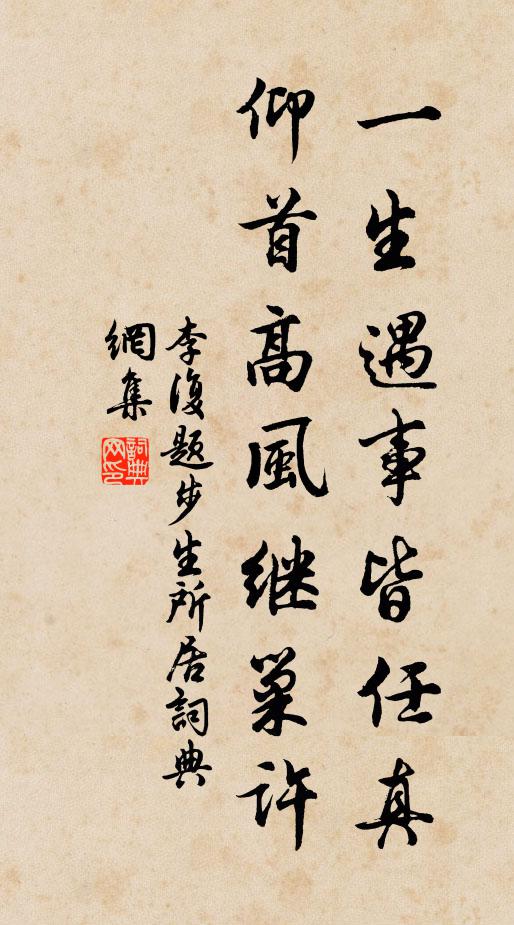 一生遇事皆任真
仰首高風继巢許
李復題步生所居詞典
網集
詞典網印